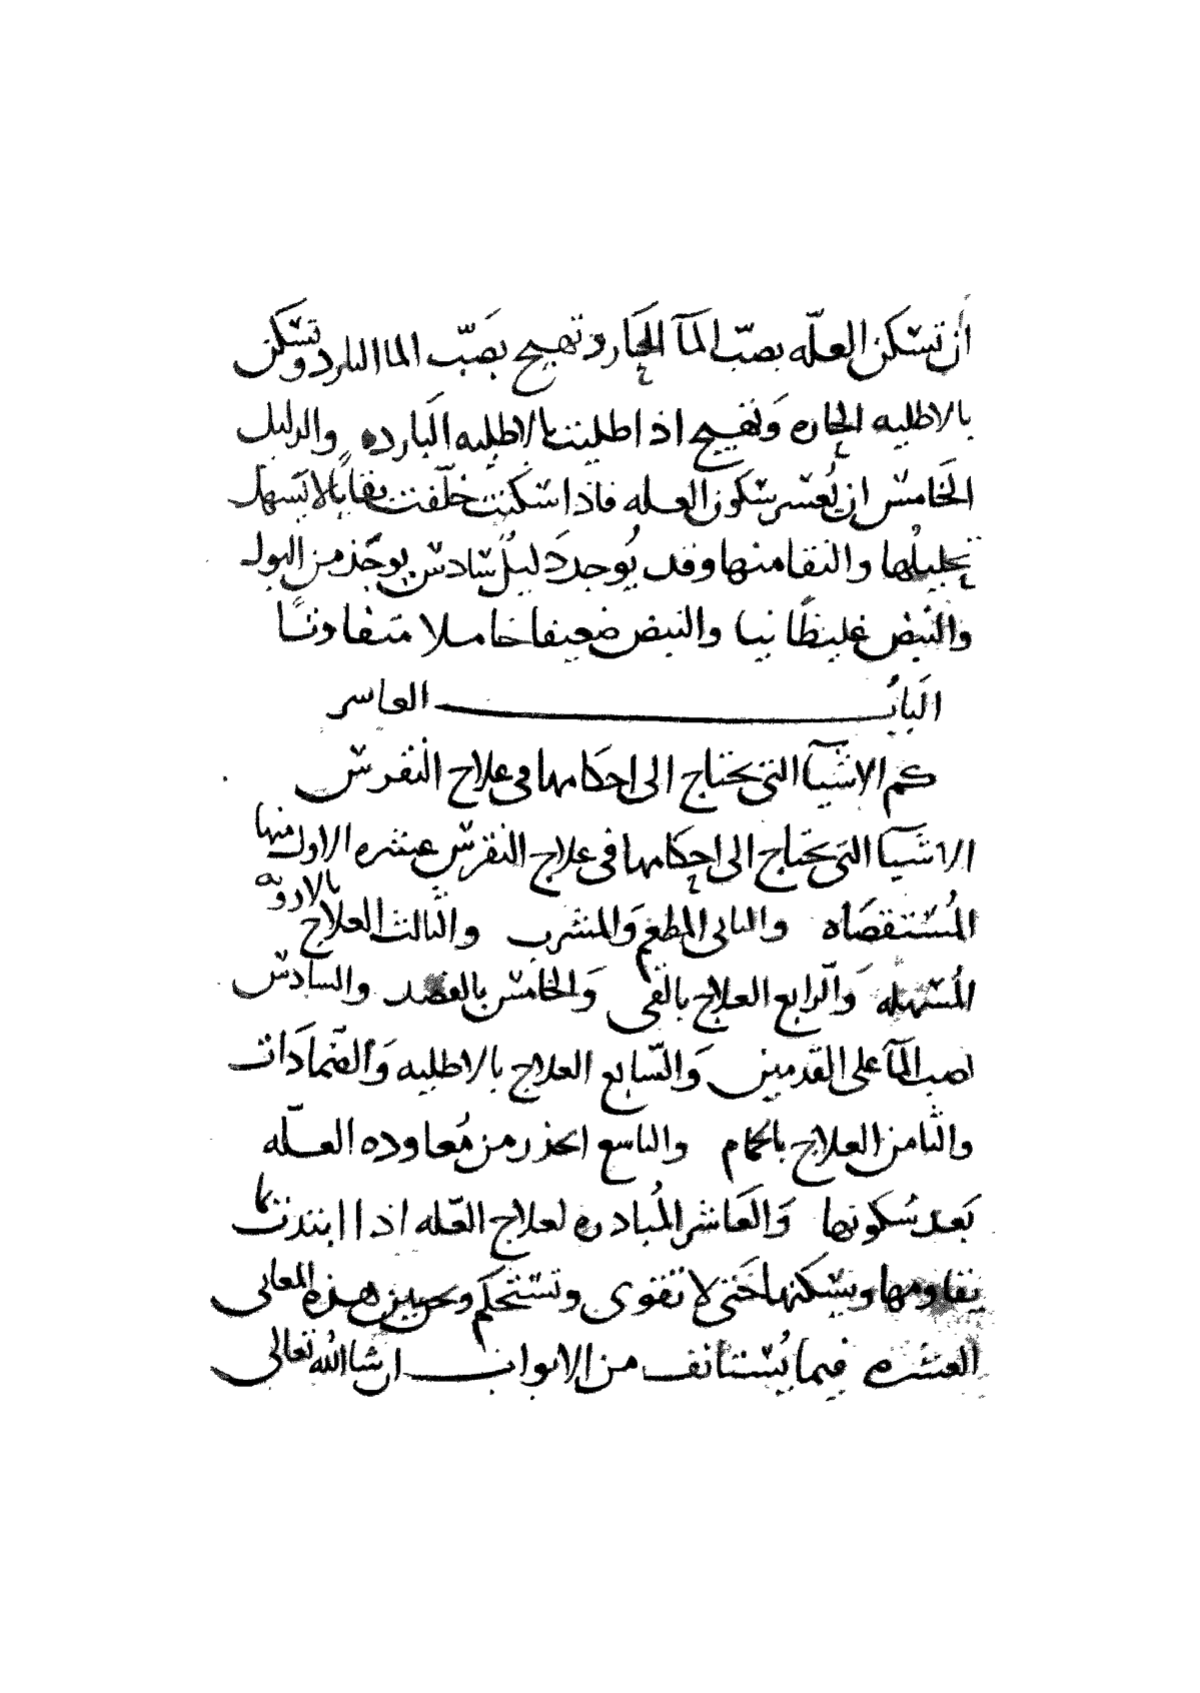 ان تسكن العلّه بصبّ المآ الحَار وتهيج بصَبّ الما البارد وتسكن
بالاطليه الحاره وَتهيج اذ اطليت بالاطليه البَارده والدليل
الخَامس ان يُعسر سكون العله فاذا سكنت خلّفت بقايا لا يسهل
تحليلُها والنقا منها وقد يُوجد دَليلُ سَادس يوخَذ من البول
والنبض غليظًا نيا والنبض ضعيفا خاملا متفاوتًا
البَابُ العاسر
كم الاشيآ التى يحتاج الى احكامها فى علاج النقرس
الاشيآ التى يحتاج الى احكامها فى علاج النقرس عشره الاول منها
المُستقصَاه والثانى المطعم وَالمشرب والثالث العلاج بالادويه
المُسهله وَالرابع العلاج بالقى وَالخامس بالفصد والسادس
صب المآ على القدمين وَالسّابع العلاج بالاطليه وَالضّمادَات
والثامن العلاج بالحمام والتاسع الحذر من مُعاوده العلّه
بَعد سُكونها وَالعَاشر المُبادره لعلاج العّله اذا ابتدت بما
يقاومها ويسكنها حَتى لا تقوى وتستحكم ونحن نبين هذه المعانى
العشره فيما يُستانف من الابواب ان شا الله تعالى